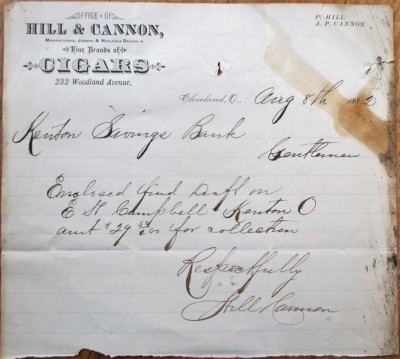 OFFICE OF
HILL & CANNON,
MANUFACTURERS, JOBBERS & WHOLESALE DEALERS IN
Fine Brands of
CIGARS
232 Woodland Avenue.
P. HILL.
A. P. CANNON.
Cleveland, O., Aug 8th 188
Kenton Savings Bank
Gentlemen
Enclosed find Draft on
E. H. Campbell Kenton O
amt $29 for collection
Respectfully
Hill Cannon